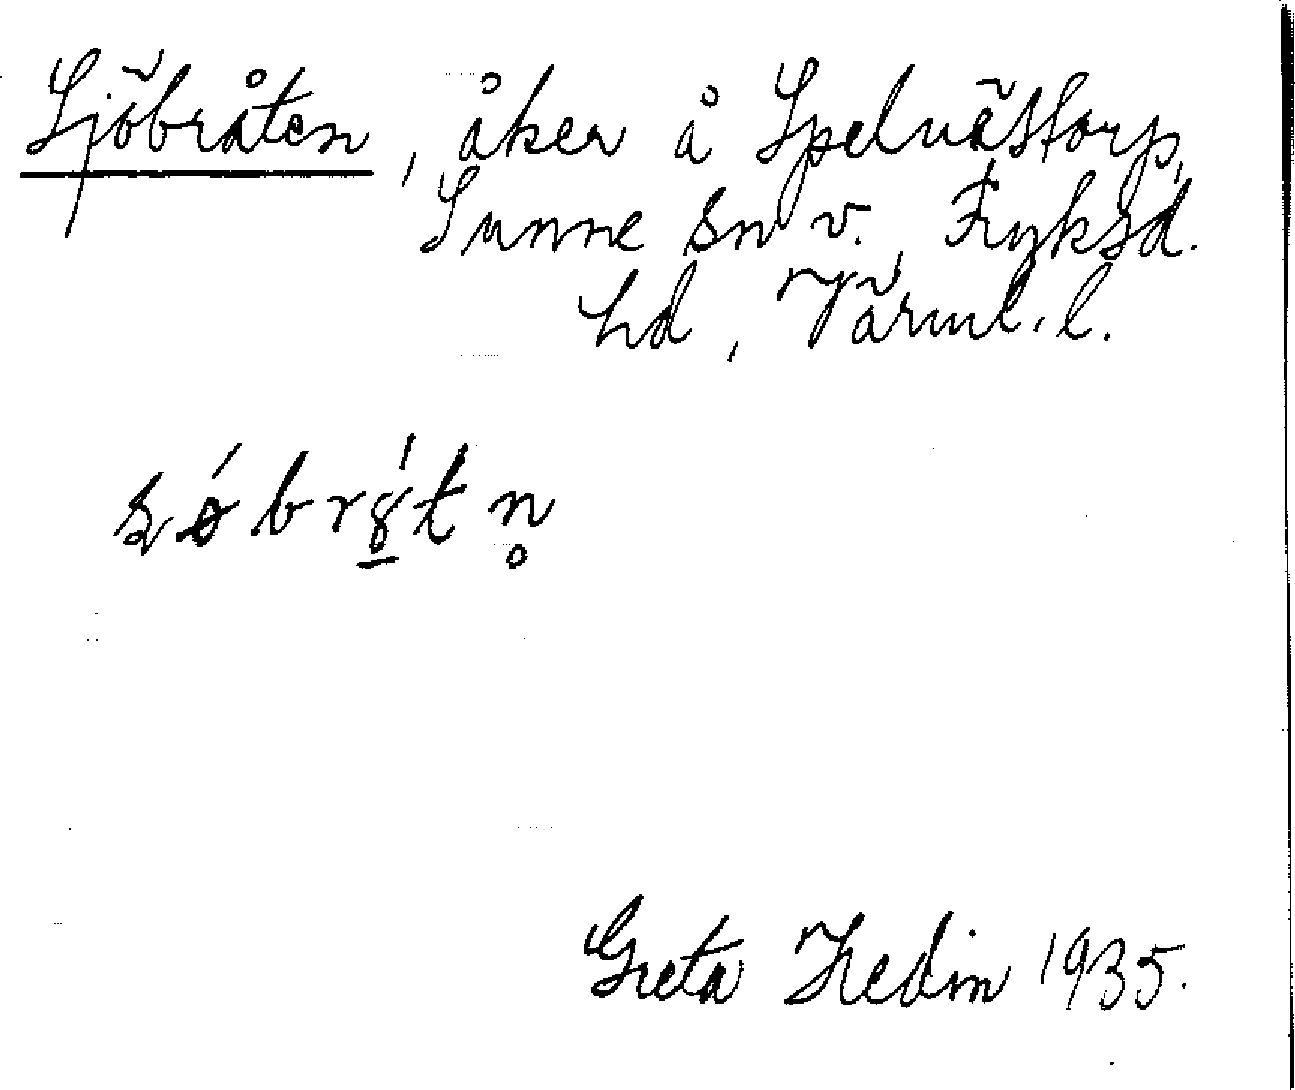 Sjöbråten, åker å Spelnästorp,
Sunne sn v., Fryksd.
hd, Värml. l.
Greta Hedin 1935.